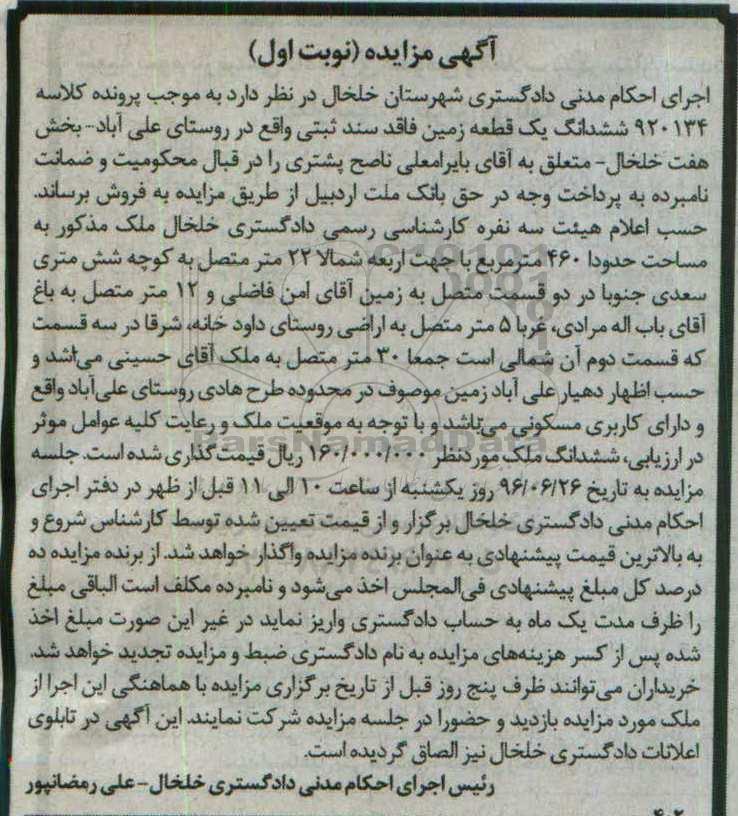 آگهی مزایده (نوبت اول)
اجرای احکام مدنی دادگستری شهرستان خلخال در نظر دارد به موجب پرونده کلاسه
۹۲۰۱۳۴ ششدانگ یک قطعه زمین فاقد سند ثبتی واقع در روستای علی آباد- بخش
هفت خلخال- متعلق به آقای بایرامعلی ناصح پشتری را در قبال محکومیت و ضمانت
نامبرده به پرداخت وجه در حق بانک ملت اردبیل از طریق مزایده به فروش برساند.
حسب اعلام هیئت سه نفره کارشناسی رسمی دادگستری خلخال ملک مذکور به
مساحت حدودا ۴۶۰ مترمربع با جهت اربعه شمالا ۲۲ متر متصل به کوچه شش متری
سعدی جنوبا در دو قسمت متصل به زمین آقای امن فاضلی و ۱۲ متر متصل به باغ
آقای باب اله مرادی، غربا ۵ متر متصل به اراضی روستای داود خانه، شرقا در سه قسمت
که قسمت دوم آن شمالی است جمعا ۳۰ متر متصل به ملک آقای حسینی می‌باشد و
حسب اظهار دهیار علی آباد زمین موصوف در محدوده طرح هادی روستای علی‌آباد واقع
و دارای کاربری مسکونی می‌باشد و با توجه به موقعیت ملک و رعایت کلیه عوامل موثر
در ارزیابی، ششدانگ ملک موردنظر ۱۶۰/۰۰۰/۰۰۰ ریال قیمت‌گذاری شده است. جلسه
مزایده به تاریخ ۹۶/۰۶/۲۶ روز یکشنبه از ساعت ۱۰ الی ۱۱ قبل از ظهر در دفتر اجرای
احکام مدنی دادگستری خلخال برگزار و از قیمت تعیین شده توسط کارشناس شروع و
به بالاترین قیمت پیشنهادی به عنوان برنده مزایده واگذار خواهد شد. از برنده مزایده ده
درصد کل مبلغ پیشنهادی فی‌المجلس اخذ می‌شود و نامبرده مکلف است الباقی مبلغ
را ظرف مدت یک ماه به حساب دادگستری واریز نماید در غیر این صورت مبلغ اخذ
شده پس از کسر هزینه‌های مزایده به نام دادگستری ضبط و مزایده تجدید خواهد شد.
خریداران می‌توانند ظرف پنج روز قبل از تاریخ برگزاری مزایده با هماهنگی این اجرا از
ملک مورد مزایده بازدید و حضورا در جلسه مزایده شرکت نمایند. این آگهی در تابلوی
اعلانات دادگستری خلخال نیز الصاق گردیده است.
رئیس اجرای احکام مدنی دادگستری خلخال- علی رمضانپور
ParsNamadData